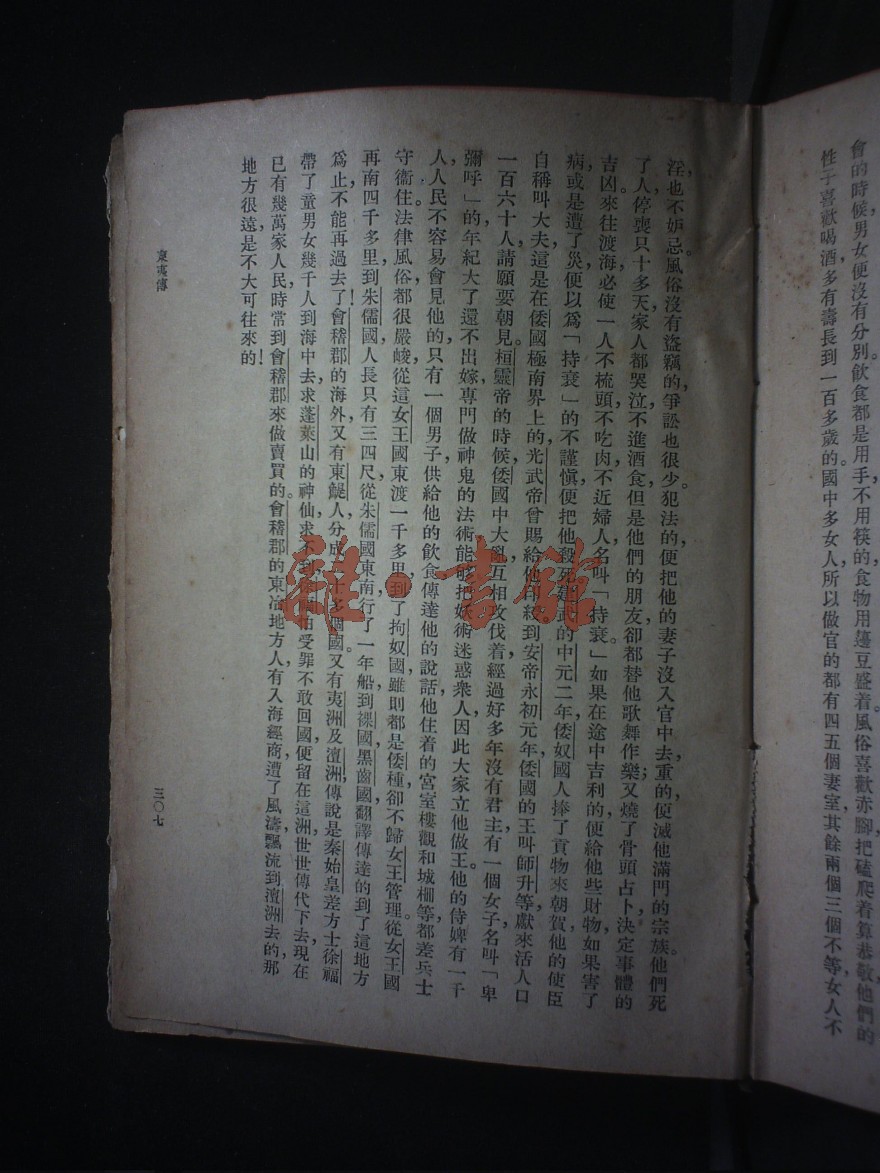 會的時候，男女便沒有分別。飲食都是用手，不用筷的，食物用籩豆盛着。風俗喜歡赤腳，把磕爬着算恭敬。他們的
性子喜歡喝酒，多有壽長到一百多歲的。國中多女人，所以做官的都有四五個妻室，其餘兩個三個不等，女人不
淫，也不妒忌。風俗沒有盜竊的，爭訟也很少。犯法的便把他的妻子沒入官中去，重的，便滅他滿門的宗族。他們死
了人，停喪只十多天，家人都哭泣，不進酒食，但是他們的朋友，卻都替他歌舞作樂；又燒了骨頭占卜，決定事體的
吉凶。來往渡海，必使一人不梳頭，不吃肉，不近婦人，名叫「持衰。」如果在途中吉利的，便給他些財物，如果害了
病，或是遭了災，便以爲「持衰」的不謹愼，便把他殺死。建武的中元二年，倭奴國人捧了貢物來朝賀，他的使臣
自稱叫大夫，這是在倭國極南界上的，光武帝曾賜給他印綬。到安帝永初元年，倭國的王叫師升等，獻來活人口
一百六十人，請願要朝見。桓靈帝的時候，倭國中大亂，互相攻伐着，經過好多年沒有君主，有一個女子名叫「卑
彌呼」的，年紀大了還不出嫁，專門做神鬼的法術，能夠把妖術迷惑衆人，因此大家立他做王。他的侍婢有一千
人，人民不容易會見他的，只有一個男子供給他的飲食，傳達他的說話，他住着的宮室樓觀和城柵等，都差兵士
守衞住，法律風俗，都很嚴峻。從這女王國東渡一千多里，到了拘奴國，雖則都是倭種，卻不歸女王管理。從女王國
再南四千多里，到朱儒國，人長只有三四尺。從朱儒國東南行了一年船，到裸國黑齒國，翻譯傳達的，到了這地方
爲止，不能再過去了！會稽郡的海外，又有東鯷人，分成二十多個國。又有夷洲及澶洲，傳說是秦始皇差方士徐福
帶了童男女幾千人到海中去，求蓬萊山的神仙，求不到，徐福怕受罪，不敢回國，便留在這洲，世世傳代下去，現在
已有幾萬家，人民時常到會稽郡來做賣買的。會稽郡的東冶地方人，有入海經商，遭了風濤，飄流到澶洲去的，那
地方很遠，是不大可往來的！
東夷傳
三〇七
雜·書館